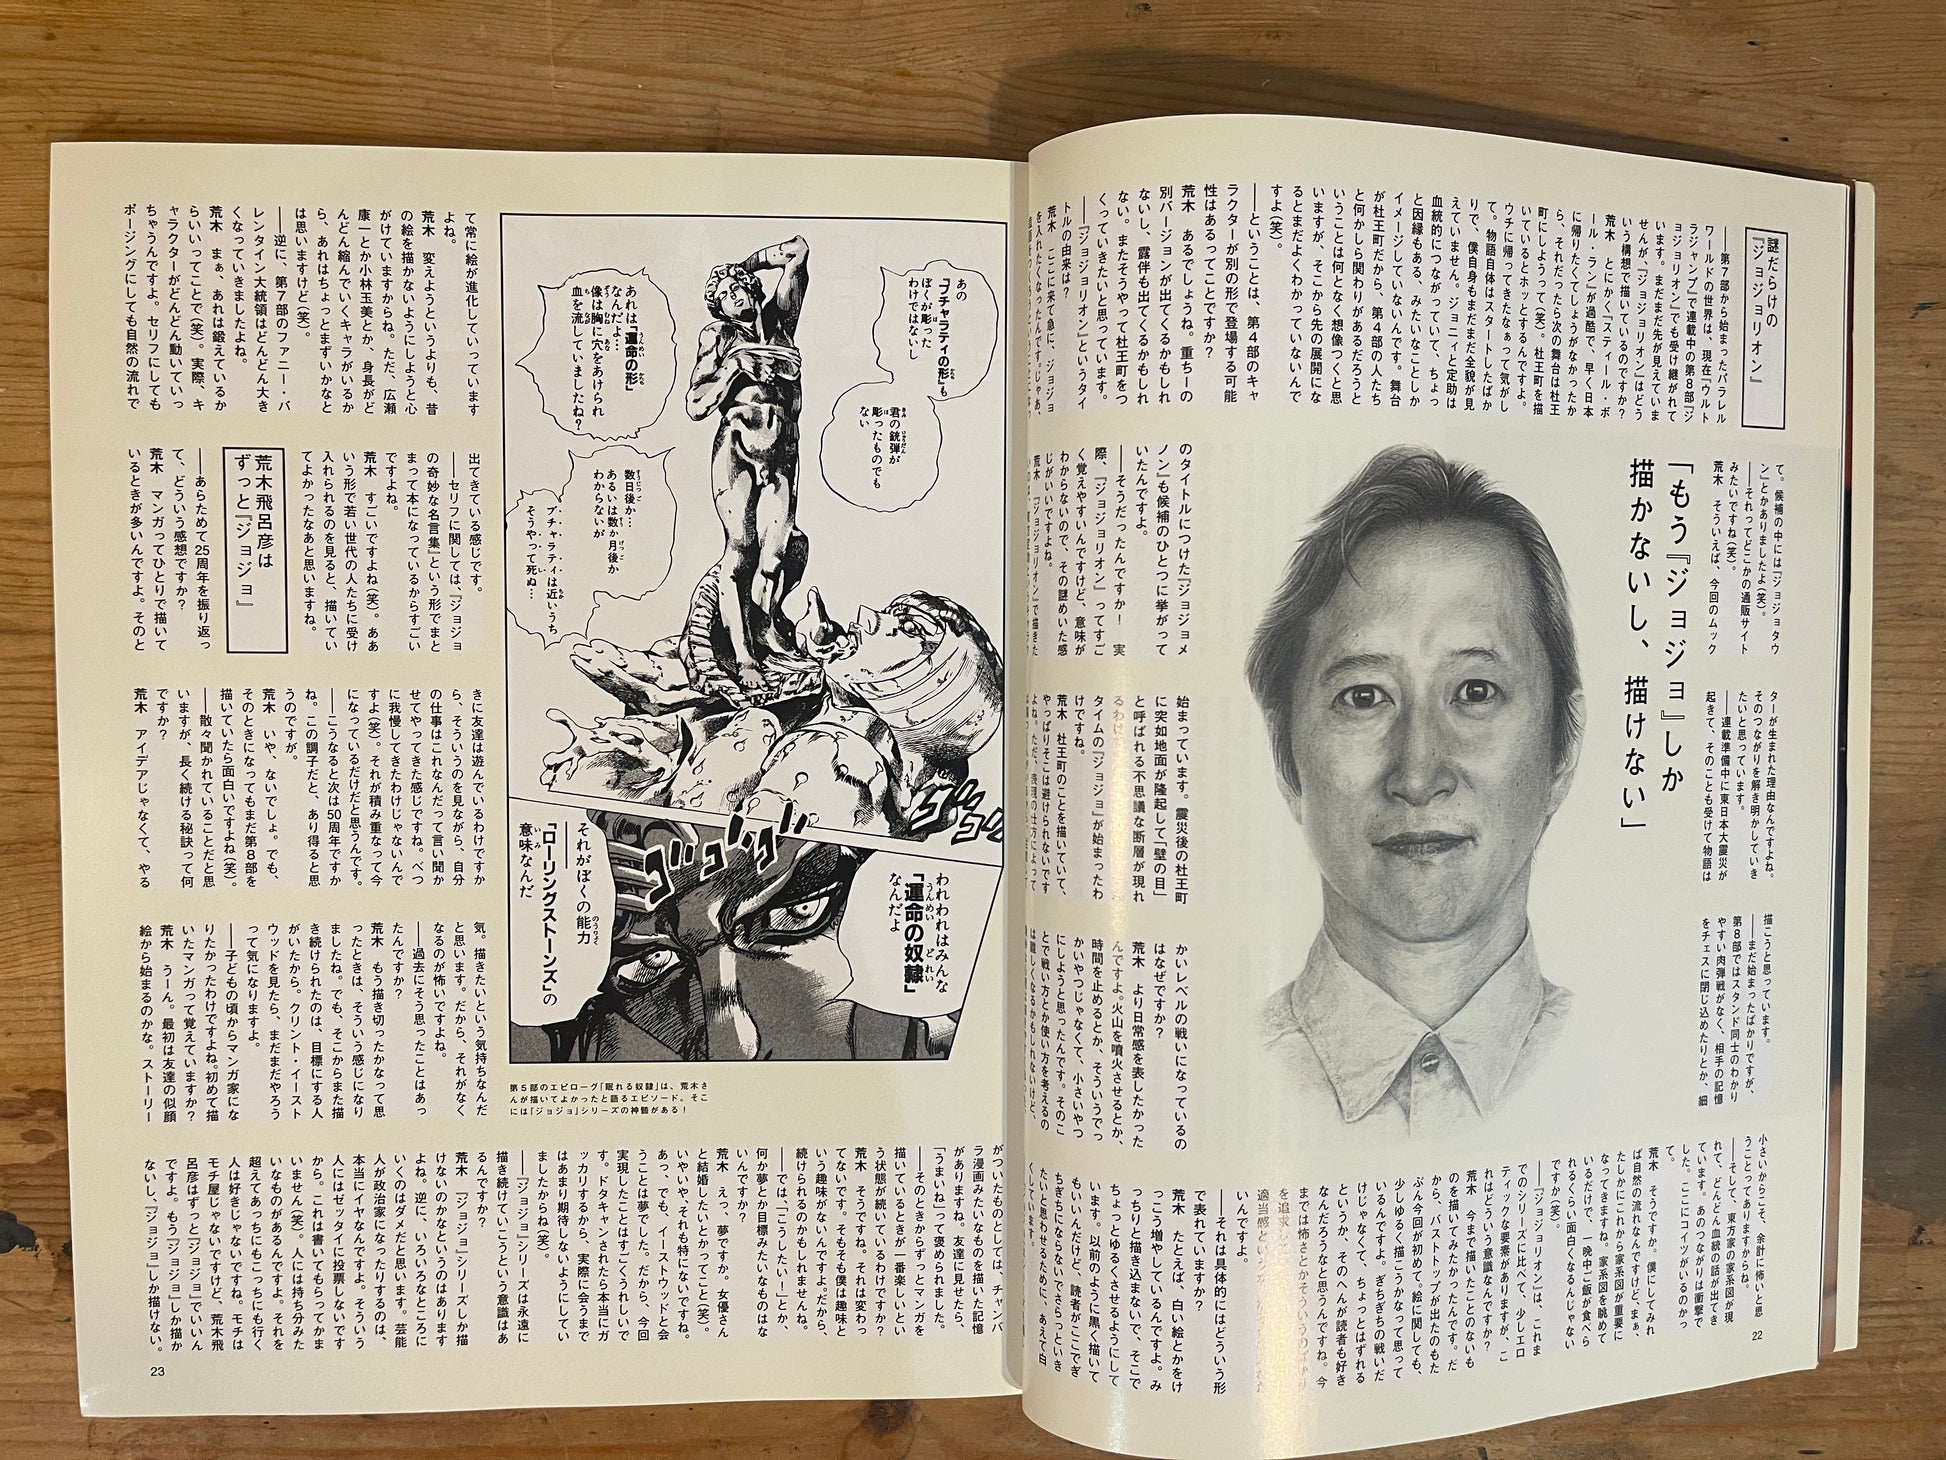 謎だらけの
『ジョジョリオン』
――第７部から始まったパラレル
ワールドの世界は、現在『ウルト
ラジャンプ』で連載中の第８部『ジ
ョジョリオン』でも受け継がれて
います。まだまだ先が見えていま
せんが、『ジョジョリオン』はどう
いう構想で描いているのですか？
荒木　とにかく『スティール・ボ
ール・ラン』が過酷で、早く日本
に帰りたくてしょうがなかったか
ら、それだったら次の舞台は杜王
町にしようって（笑）。杜王町を描
いているとホッとするんですよ。
ウチに帰ってきたなぁって気がし
て。物語自体はスタートしたばか
りで、僕自身もまだまだ全貌が見
えていません。ジョニィと定助は
血統的につながっていて、ちょっ
と因縁もある、みたいなことしか
イメージしていないんです。舞台
が杜王町だから、第４部の人たち
と何かしら関わりがあるだろうと
いうことは何となく想像つくと思
いますが、そこから先の展開にな
るとまだよくわかっていないんで
すよ（笑）。
――ということは、第４部のキャ
ラクターが別の形で登場する可能
性はあるってことですか？
荒木　あるでしょうね。重ちーの
別バージョンが出てくるかもしれ
ないし、露伴も出てくるかもしれ
ない。またそうやって杜王町をつ
くっていきたいと思っています。
――『ジョジョリオン』というタイ
トルの由来は？
荒木　ここに来て急に、ジョジョ
を入れたくなったんです。じゃあ、
て。候補の中には『ジョジョタウ
ン』とかありましたよ（笑）。
――それってどこかの通販サイト
みたいですね（笑）。
荒木　そういえば、今回のムック
「もう『ジョジョ』しか
描かないし、描けない」
のタイトルにつけた『ジョジョメ
ノン』も候補のひとつに挙がって
いたんですよ。
――そうだったんですか！　実
際、『ジョジョリオン』ってすご
く覚えやすいんですけど、意味が
わからないので、その謎めいた感
じがいいですよね。
荒木　『ジョジョリオン』で描きた
ターが生まれた理由なんですよね。
そのつながりを解き明かしていき
たいと思っています。
――連載準備中に東日本大震災が
起きて、そのことも受けて物語は
始まっています。震災後の杜王町
に突如地面が隆起して「壁の目」
と呼ばれる不思議な断層が現れ
るわけ
タイムの『ジョジョ』が始まったわ
けですね。
荒木　杜王町のことを描いていて、
やっぱりそこは避けられないです
よね。ただ、表現の仕方によって
描こうと思っています。
――まだ始まったばかりですが、
第８部ではスタンド同士のわかり
やすい肉弾戦がなく、相手の記憶
をチェスに閉じ込めたりとか、細
かいレベルの戦いになっているの
はなぜですか？
荒木　より日常感を表したかった
んですよ。火山を噴火させるとか、
時間を止めるとか、そういうでっ
かいやつじゃなくて、小さいやつ
にしようと思ったんです。そのこ
とで戦い方とか使い方を考えるの
は難しくなるかもしれないけど、
小さいからこそ、余計に怖いと思
うことってありますからね。
――そして、東方家の家系図が現
れて、どんどん血統の話が出てき
ています。あのつながりは衝撃で
した。ここにコイツがいるのかっ
て。
荒木　そうですか。僕にしてみれ
ば自然の流れなんですけど、まぁ、
たしかにこれから家系図が重要に
なってきますね。家系図を眺めて
いるだけで、一晩中ご飯が食べら
れるくらい面白くなるんじゃない
ですか（笑）。
――『ジョジョリオン』は、これま
でのシリーズに比べて、少しエロ
ティックな要素がありますが、こ
れはどういう意識なんですか？
荒木　今まで描いたことのないも
のを描いてみたかったんです。だ
から、バストトップが出たのもた
ぶん今回が初めて。絵に関しても、
少しゆるく描こうかなって思って
いるんですよ。ぎちぎちの戦いだ
けじゃなくて、ちょっとはずれる
というか、そのへんが読者も好き
なんだろうなと思うんですね。今
までは怖さとかそういうのばかり
を追求
適当感という
いんですよ。
――それは具体的にはどういう形
で表れていますか？
荒木　たとえば、白い絵とかをけ
っこう増やしているんですよ。み
っちりと描き込まないで、そこで
ちょっとゆるくさせるようにして
います。以前のように黒く描いて
もいいんだけど、読者がここでぎ
ちぎちにならないでさらっといき
たいと思わせるために、あえて白
くしています。
22
て常に絵が進化していっています
よね。
荒木　変えようというよりも、昔
の絵を描かないようにしようと心
がけていますからね。ただ、広瀬
康一とか小林玉美とか、身長がど
んどん縮んでいくキャラがいるか
ら、あれはちょっとまずいかなと
は思いますけど（笑）。
――逆に、第７部のファニー・バ
レンタイン大統領はどんどん大き
くなっていきましたよね。
荒木　まぁ、あれは鍛えているか
らいいってことで（笑）。実際、キ
ャラクターがどんどん動いていっ
ちゃうんですよ。セリフにしても
ポージングにしても自然の流れで
出てきている感じです。
――セリフに関しては、『ジョジョ
の奇妙な名言集』という形でまと
まって本になっているからすごい
ですよね。
荒木　すごいですよね（笑）。ああ
いう形で若い世代の人たちに受け
入れられるのを見ると、描いてい
てよかったなあと思いますね。
荒木飛呂彦は
ずっと『ジョジョ』
――あらためて25周年を振り返っ
て、どういう感想ですか？
荒木　マンガってひとりで描いて
いるときが多いんですよ。そのと
きに友達は遊んでいるわけですか
ら、そういうのを見ながら、自分
の仕事はこれなんだって言い聞か
せてやってきた感じですね。べつ
に我慢してきたわけじゃないんで
すよ（笑）。それが積み重なって今
になっているだけだと思うんです。
――こうなると次は50周年ですか
ね。この調子だと、あり得ると思
うのですが。
荒木　いや、ないでしょ。でも、
そのときになってもまだ第８部を
描いていたら面白いですよね（笑）。
――散々聞かれていることだと思
いますが、長く続ける秘訣って何
ですか？
荒木　アイデアじゃなくて、やる
気。描きたいという気持ちなんだ
と思います。だから、それがなく
なるのが怖いですよね。
――過去にそう思ったことはあっ
たんですか？
荒木　もう描き切ったかなって思
ったときは、そういう感じになり
ましたね。でも、そこからまた描
き続けられたのは、目標にする人
がいたから。クリント・イースト
ウッドを見たら、まだまだやろう
って気になりますよ。
――子どもの頃からマンガ家にな
りたかったわけですよね。初めて描
いたマンガって覚えていますか？
荒木　うーん。最初は友達の似顔
絵から始まるのかな。ストーリー
がついたものとしては、チャンバ
ラ漫画みたいなものを描いた記憶
がありますね。友達に見せたら、
「うまいね」って褒められました。
――そのときからずっとマンガを
描いているときが一番楽しいとい
う状態が続いているわけですか？
荒木　そうですね。それは変わっ
てないです。そもそも僕は趣味と
いう趣味がないんですよ。だから、
続けられるのかもしれませんね。
――では、「こうしたい！」とか、
何か夢とか目標みたいなものはな
いんですか？
荒木　えっ、夢ですか。女優さん
と結婚したいとかってこと（笑）。
いやいや、それも特にないですね。
あっ、でも、イーストウッドと会
うことは夢でした。だから、今回
実現したことはすごくうれしいで
す。ドタキャンされたら本当にガ
ッカリするから、実際に会うまで
はあまり期待しないようにしてい
ましたからね（笑）。
――『ジョジョ』シリーズは永遠に
描き続けていこうという意識はあ
るんですか？
荒木　『ジョジョ』シリーズしか描
けないのかなというのはあります
よね。逆に、いろいろなところに
いくのはダメだと思います。芸能
人が政治家になったりするのは、
本当にイヤなんですよ。そういう
人にはゼッタイに投票しないです
から。これは書いてもらってかま
いません（笑）。人には持ち分みた
いなものがあるんですよ。それを
超えてあっちにもこっちにも行く
人は好きじゃないですね。モチは
モチ屋じゃないですけど、荒木飛
呂彦はずっと『ジョジョ』でいいん
ですよ。もう『ジョジョ』しか描か
ないし、『ジョジョ』しか描けない。
あの
「ブチャラティの形」も
ぼくが彫った
わけではないし
君の銃弾が
彫ったものでも
ない
あれは「運命の形」
なんだよ…
像は胸に穴をあけられ
血を流していましたね？
数日後か…
あるいは数か月後か
わからないが
ブチャラティは近いうち
そうやって死ぬ…
ゴゴゴ
ゴゴゴ
われわれはみんな
「運命の奴隷」
なんだよ
それがぼくの能力
「ローリングストーンズ」の
意味なんだ
第５部のエピローグ「眠れる奴隷」は、荒木さ
んが描いてよかったと語るエピソード。そこ
には「ジョジョ」シリーズの神髄がある！
23